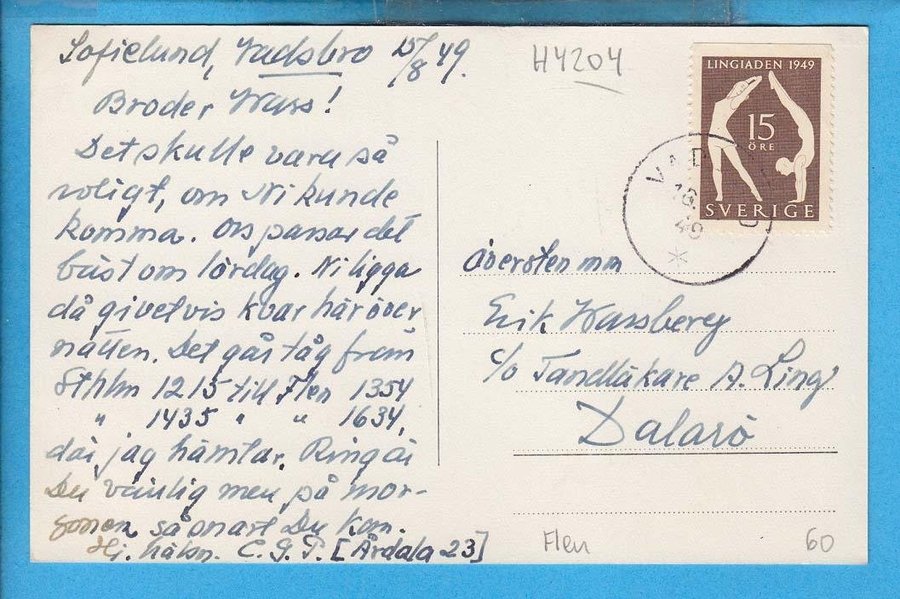 Sofielund, Vadsbro 15/8 49.
Broder Wass!
Det skulle vara så
roligt, om Ni kunde
komma. Oss passar det
bäst om lördag. Ni ligga
då givetvis kvar här över
natten. Det går tåg från
Sthlm 1215 till Flen 1354
" 1435 " " 1634,
där jag hämtar. Ring är
Du vänlig men på mor-
gonen så snart Du kan.
Hj. häln. C.G.P. [Årdala 23]
H4204
LINGIADEN 1949
15
ÖRE
SVERIGE
Översten mm
Erik Wassberg
c/o Tandläkare A. Ling
Dalarö
Flen
60